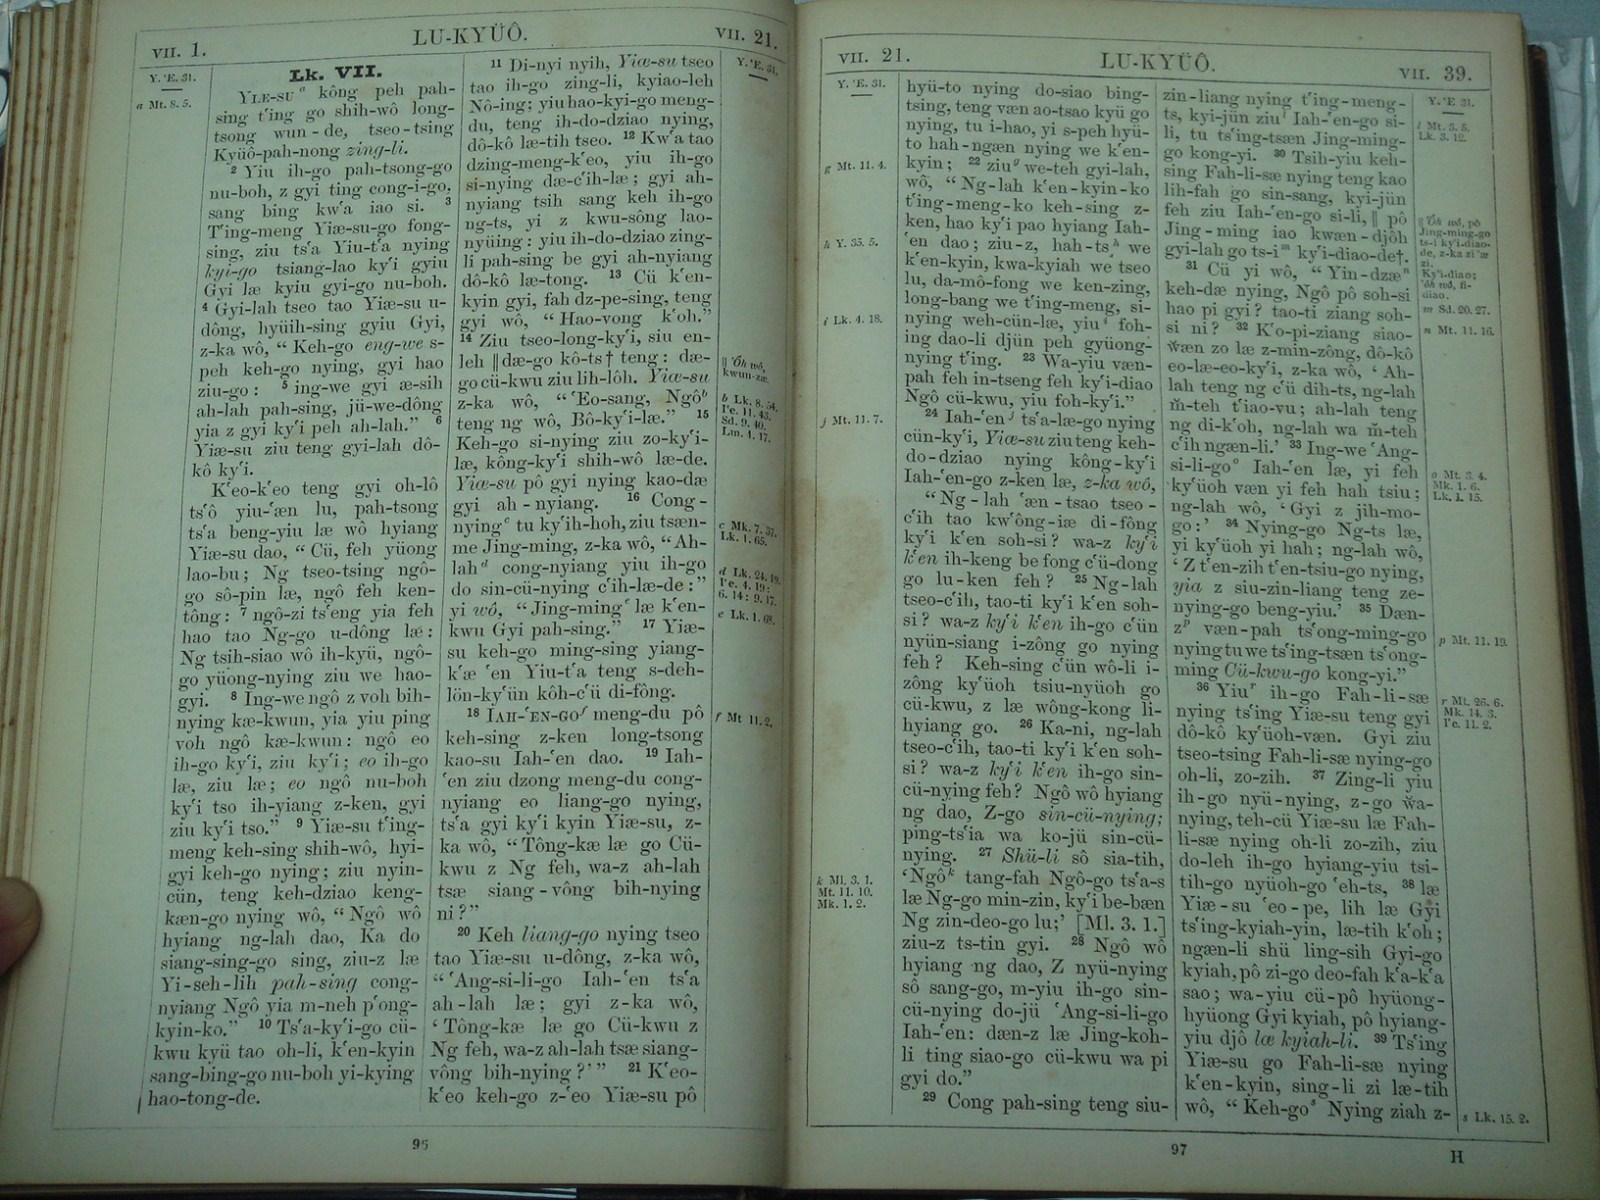 VII. 1.
LU-KYÜÔ.
VII. 21.
Y. 'E. 31.
a Mt. 8. 5.
Lk. VII.
YLE-SU a kông peh pah-
sing t'ing go shih-wô long-
tsong wun-de, tseo-tsing
Kyüô-pah-nong zing-li.
2 Yiu ih-go pah-tsong-go
nu-boh, z gyi ting cong-i-go,
sang bing kw'a iao si. 3
T'ing-meng Yiæ-su-go fong-
sing, ziu ts'a Yiu-t'a nying
kyi-go tsiang-lao ky'i gyiu
Gyi læ kyiu gyi-go nu-boh.
4 Gyi-lah tseo tao Yiæ-su u-
dông, hyüih-sing gyiu Gyi,
z-ka wô, “ Keh-go eng-we s-
peh keh-go nying, gyi hao
ziu-go : 5 ing-we gyi æ-sih
ah-lah pah-sing, jü-we-dông
yia z gyi ky'i peh ah-lah.” 6
Yiæ-su ziu teng gyi-lah dô-
kô ky'i.
K'eo-k'eo teng gyi oh-lô
ts'ô yiu-'æn lu, pah-tsong
ts'a beng-yiu læ wô hyiang
Yiæ-su dao, “ Cü, feh yüong
lao-bu; Ng tseo-tsing ngô-
go sô-pin læ, ngô feh ken-
tông : 7 ngô-zi ts'eng yia feh
hao tao Ng-go u-dông læ :
Ng tsih-siao wô ih-kyü, ngô-
go yüong-nying ziu we hao-
gyi. 8 Ing-we ngô z voh bih-
nying kæ-kwun, yia yiu ping
voh ngô kæ-kwun : ngô eo
ih-go ky'i, ziu ky'i; eo ih-go
læ, ziu læ; eo ngô nu-boh
ky'i tso ih-yiang z-ken, gyi
ziu ky'i tso.” 9 Yiæ-su t'ing-
meng keh-sing shih-wô, hyi-
gyi keh-go nying; ziu nyin-
cün, teng keh-dziao keng-
kæn-go nying wô, “ Ngô wô
hyiang ng-lah dao, Ka do
siang-sing-go sing, ziu-z læ
Yi-seh-lih pah-sing cong-
nyiang Ngô yia m-neh p'ong-
kyin-ko.” 10 Ts'a-ky'i-go cü-
kwu kyü tao oh-li, k'en-kyin
sang-bing-go nu-boh yi-kying
hao-tong-de.
11 Di-nyi nyih, Yiæ-su tseo
tao ih-go zing-li, kyiao-leh
Nô-ing; yiu hao-kyi-go meng-
du, teng ih-do-dziao nying,
dô-kô læ-tih tseo. 12 Kw'a tao
dzing-meng-k'eo, yiu ih-go
si-nying dæ-c'ih-læ; gyi ah-
nyiang tsih sang keh ih-go
ng-ts, yi z kwu-sông lao-
nyüing : yiu ih-do-dziao zing-
li pah-sing be gyi ah-nyiang
dô-kô læ-tong. 13 Cü k'en-
kyin gyi, fah dz-pe-sing, teng
gyi wô, “ Hao-vong k'oh.”
14 Ziu tseo-long-ky'i, siu en-
leh || dæ-go kô-ts † teng : dæ-
go cü-kwu ziu lih-lôh. Yiæ-su
z-ka wô, “ 'Eo-sang, Ngô b
teng ng wô, Bô-ky'i-læ.” 15
Keh-go si-nying ziu zo-ky'i-
læ, kông-ky'i shih-wô læ-de.
Yiæ-su pô gyi nying kao-dæ
gyi ah-nyiang. 16 Cong-
nying c tu ky'ih-hoh, ziu tsæn-
me Jing-ming, z-ka wô, “ Ah-
lah d cong-nyiang yiu ih-go
do sin-cü-nying c'ih-læ-de :”
yi wô, “ Jing-ming e læ k'en-
kwu Gyi pah-sing.” 17 Yiæ-
su keh-go ming-sing yiang-
k'æ 'en Yiu-t'a teng s-deh-
lön-ky'ün kôh-c'ü di-fông.
18 IAH-'EN-GO f meng-du pô
keh-sing z-ken long-tsong
kao-su Iah-'en dao. 19 Iah-
'en ziu dzong meng-du cong-
nyiang eo liang-go nying,
ts'a gyi ky'i kyin Yiæ-su, z-
ka wô, “ Tông-kæ læ go Cü-
kwu z Ng feh, wa-z ah-lah
tsæ siang-vông bih-nying
ni ?”
20 Keh liang-go nying tseo
tao Yiæ-su u-dông, z-ka wô,
“ 'Ang-si-li-go Iah-'en ts'a
ah-lah læ; gyi z-ka wô,
‘ Tông-kæ læ go Cü-kwu z
Ng feh, wa-z ah-lah tsæ siang-
vông bih-nying ?’ ” 21 K'eo-
k'eo keh-go z-'eo Yiæ-su pô
Y. 'E. 31.
|| 'Ôh wô,
kwun-zæ.
b Lk. 8. 54.
I'e. 11. 43.
Sd. 9. 40.
Lm. 4. 17.
c Mk. 7. 37.
Lk. 1. 65.
d Lk. 24. 19.
I'e. 4. 19 :
6. 14 : 9. 17.
e Lk. 1. 68.
f Mt 11. 2.
96
VII. 21.
LU-KYÜÔ.
VII. 39.
Y. 'E. 31.
g Mt. 11. 4.
h Y. 35. 5.
i Lk. 4. 18.
j Mt. 11. 7.
k Ml. 3. 1.
Mt. 11. 10.
Mk. 1. 2.
hyü-to nying do-siao bing-
tsing, teng væn ao-tsao kyü go
nying, tu i-hao, yi s-peh hyü-
to hah-ngæn nying we k'en-
kyin; 22 ziu g we-teh gyi-lah,
wô, “ Ng-lah k'en-kyin-ko
t'ing-meng-ko keh-sing z-
ken, hao ky'i pao hyiang Iah-
'en dao; ziu-z, hah-ts h we
k'en-kyin, kwa-kyiah we tseo
lu, da-mô-fong we ken-zing,
long-bang we t'ing-meng, si-
nying weh-cün-læ, yiu i foh-
ing dao-li djün peh gyüong-
nying t'ing. 23 Wa-yiu væn-
pah feh in-tseng feh ky'i-diao
Ngô cü-kwu, yiu foh-ky'i.”
24 Iah-'en j ts'a-læ-go nying
cün-ky'i, Yiæ-su ziu teng keh-
do-dziao nying kông-ky'i
Iah-'en-go z-ken læ, z-ka wô,
“ Ng-lah 'æn-tsao tseo-
c'ih tao kw'ông-iæ di-fông
ky'i k'en soh-si ? wa-z ky'i
k'en ih-keng be fong c'ü-dong
go lu-ken feh ? 25 Ng-lah
tseo-c'ih, tao-ti ky'i k'en soh-
si ? wa-z ky'i k'en ih-go c'ün
nyün-siang i-zông go nying
feh ? Keh-sing c'ün wô-li i-
zông ky'üoh tsiu-nyüoh go
cü-kwu, z læ wông-kong li-
hyiang go. 26 Ka-ni, ng-lah
tseo-c'ih, tao-ti ky'i k'en soh-
si ? wa-z ky'i k'en ih-go sin-
cü-nying feh ? Ngô wô hyiang
ng dao, Z-go sin-cü-nying;
ping-ts'ia wa ko-jü sin-cü-
nying. 27 Shü-li sô sia-tih,
‘Ngô k tang-fah Ngô-go ts'a-s
læ Ng-go min-zin, ky'i be-bæn
Ng zin-deo-go lu;’ [Ml. 3. 1.]
ziu-z ts-tin gyi. 28 Ngô wô
hyiang ng dao, Z nyü-nying
sô sang-go, m-yiu ih-go sin-
cü-nying do-jü 'Ang-si-li-go
Iah-'en : dæn-z læ Jing-koh-
li ting siao-go cü-kwu wa pi
gyi do.”
29 Cong pah-sing teng siu-
zin-liang nying t'ing-meng-
ts, kyi-jün ziu l Iah-'en-go si-
li, tu ts'ing-tsæn Jing-ming-
go kong-yi. 30 Tsih-yiu keh-
sing Fah-li-sæ nying teng kao
lih-fah go sin-sang, kyi-jün
feh ziu Iah-'en-go si-li, || pô
Jing-ming iao kwæn-djôh
gyi-lah go ts-i m ky'i-diao-de†.
31 Cü yi wô, “ Yin-dzæ n
keh-dæ nying, Ngô pô soh-si
hao pi gyi ? tao-ti ziang soh-
si ni ? 32 K'o-pi-ziang siao-
w̌æn zo læ z-min-zông, dô-kô
eo-læ-eo-ky'i, z-ka wô, ‘ Ah-
lah teng ng c'ü dih-ts, ng-lah
m̌-teh t'iao-vu; ah-lah teng
ng di-k'oh, ng-lah wa m̌-teh
c'ih ngæn-li.’ 33 Ing-we 'Ang-
si-li-go o Iah-'en læ, yi feh
ky'üoh væn yi feh hah tsiu;
ng-lah wô, ‘ Gyi z jih-mo-
go :’ 34 Nying-go Ng-ts læ,
yi ky'üoh yi hah; ng-lah wô,
‘ Z t'en-zih t'en-tsiu-go nying,
yia z siu-zin-liang teng ze-
nying-go beng-yiu.’ 35 Dæn-
z p væn-pah ts'ong-ming-go
nying tu we ts'ing-tsæn ts'ong-
ming Cü-kwu-go kong-yi.”
36 Yiu r ih-go Fah-li-sæ
nying ts'ing Yiæ-su teng gyi
dô-kô ky'üoh-væn. Gyi ziu
tseo-tsing Fah-li-sæ nying-go
oh-li, zo-zih. 37 Zing-li yiu
ih-go nyü-nying, z-go w̌a-
nying, teh-cü Yiæ-su læ Fah-
li-sæ nying oh-li zo-zih, ziu
do-leh ih-go hyiang-yiu tsi-
tih-go nyüoh-go 'eh-ts, 38 læ
Yiæ-su 'eo-pe, lih læ Gyi
ts'ing-kyiah-yin, læ-tih k'oh;
ngæn-li shü ling-sih Gyi-go
kyiah, pô zi-go deo-fah k'a-k'a
sao; wa-yiu cü-pô hyüong-
hyüong Gyi kyiah, pô hyiang-
yiu djô læ kyiah-li. 39 Ts'ing
Yiæ-su go Fah-li-sæ nying
k'en-kyin, sing-li zi læ-tih
wô, “ Keh-go s Nying ziah z-
Y. 'E 31.
l Mt. 3. 5.
Lk. 3. 12.
|| 'Ôh wô, pô
Jing-ming-go
ts-i ky'i-diao-
de, z-ka zi 'æ
zi.
Ky'i-diao;
'ôh wô, fi-
diao.
m Sd. 20. 27.
n Mt. 11. 16.
o Mt. 3. 4.
Mk. 1. 6.
Lk. 1. 15.
p Mt. 11. 19.
r Mt. 26. 6.
Mk. 14. 3.
I'e. 11. 2.
s Lk. 15. 2.
97
H